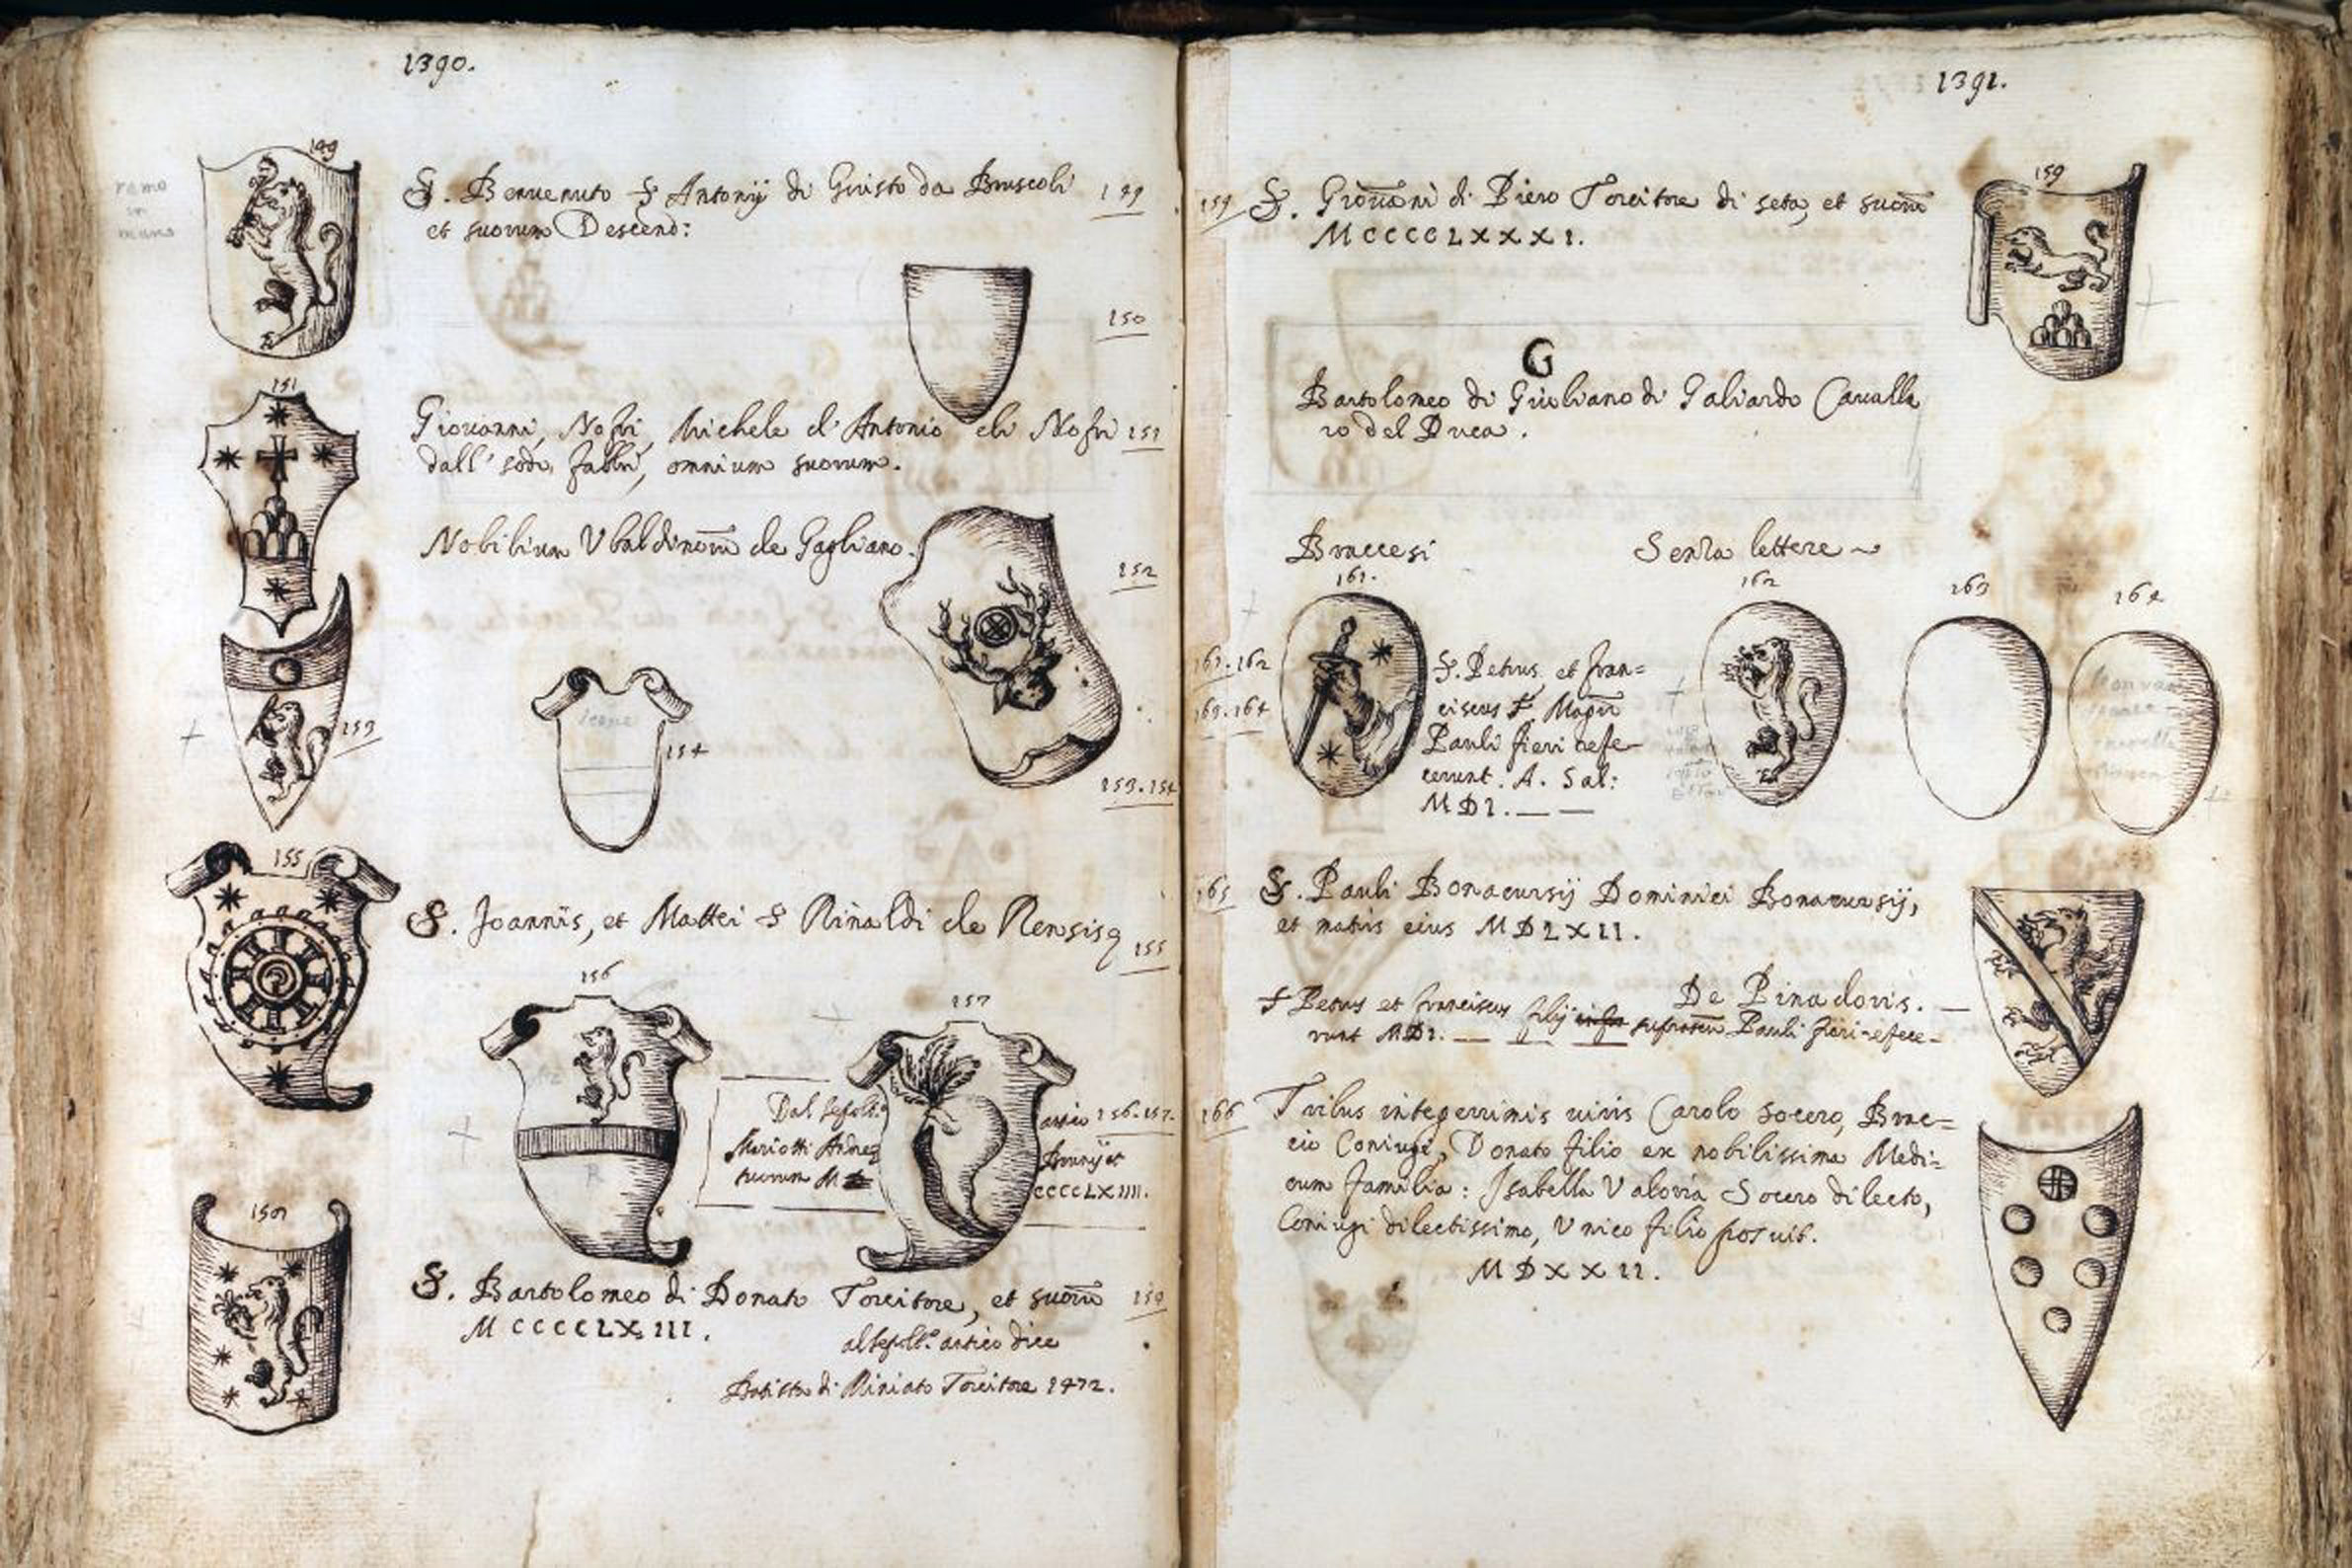 1390.
149
ramo
in
mano
S. Benvenuto S Antonij di Giusto da Bruscoli 149
et suorum Descend:
150
151
Giovanni, Nofri, Michele d'Antonio di Nofri 151
dall' sodo, fabbri, omnium suorum.
Nobilium Ubaldinorū de Gagliano.
152
153
154
153.154
155
S. Joannis, et Mattei S Rinaldi de
155
156
157
Dal sepolt.
antico 156.157.
Mariotti Andreę
Brunij et
suorum M
CCCCLXIIII.
S. Bartolomeo di Donato Torcitore, et suorū
MCCCCLXIII.
al sepolt.º antico dice
Batista di Miniato Torcitore 1472.
1391.
159
159 S. Giovāni di Piero Torcitore di seta, et suorū
MCCCCLXXXI.
G
Bartolomeo di Giuliano di Galiardo Cavalla
ro del Duca.
Braccesi
Senza lettere
161.
162
163
164
161.162
163.164
S. Petrus, et fran=
ciscus F. Magrī
Pauli fieri refe-
cerunt. A. Sal:
MDI.
165 S. Pauli Bonacursij Dominici Bonacursij,
et matris eius MDLXII.
De Pinadoris.
S Petrus et franciscus filij Pauli fieri refece-
runt MDI.
166 Tribus integerrimis viris Carolo Socero, Brac=
cio Coniugi, Donato filio ex nobilissima Medi=
cum familia: Isabella Valoria Socero dilecto,
Coniugi dilectissimo, Unico filio posuit.
MDXXII.